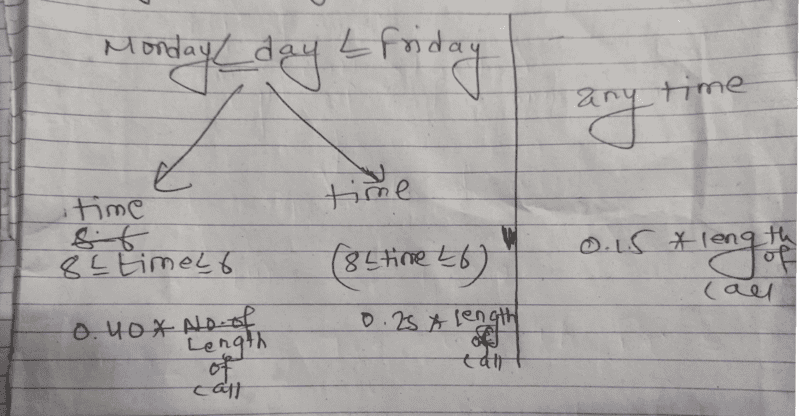 Monday ≤ day ≤ friday
any time
time
8-6
8 ≤ time ≤ 6
0.40 * No. of
Length
of
call
time
(8 ≤ time ≤ 6)
0.25 * length
of
call
0.15 * length
of
call